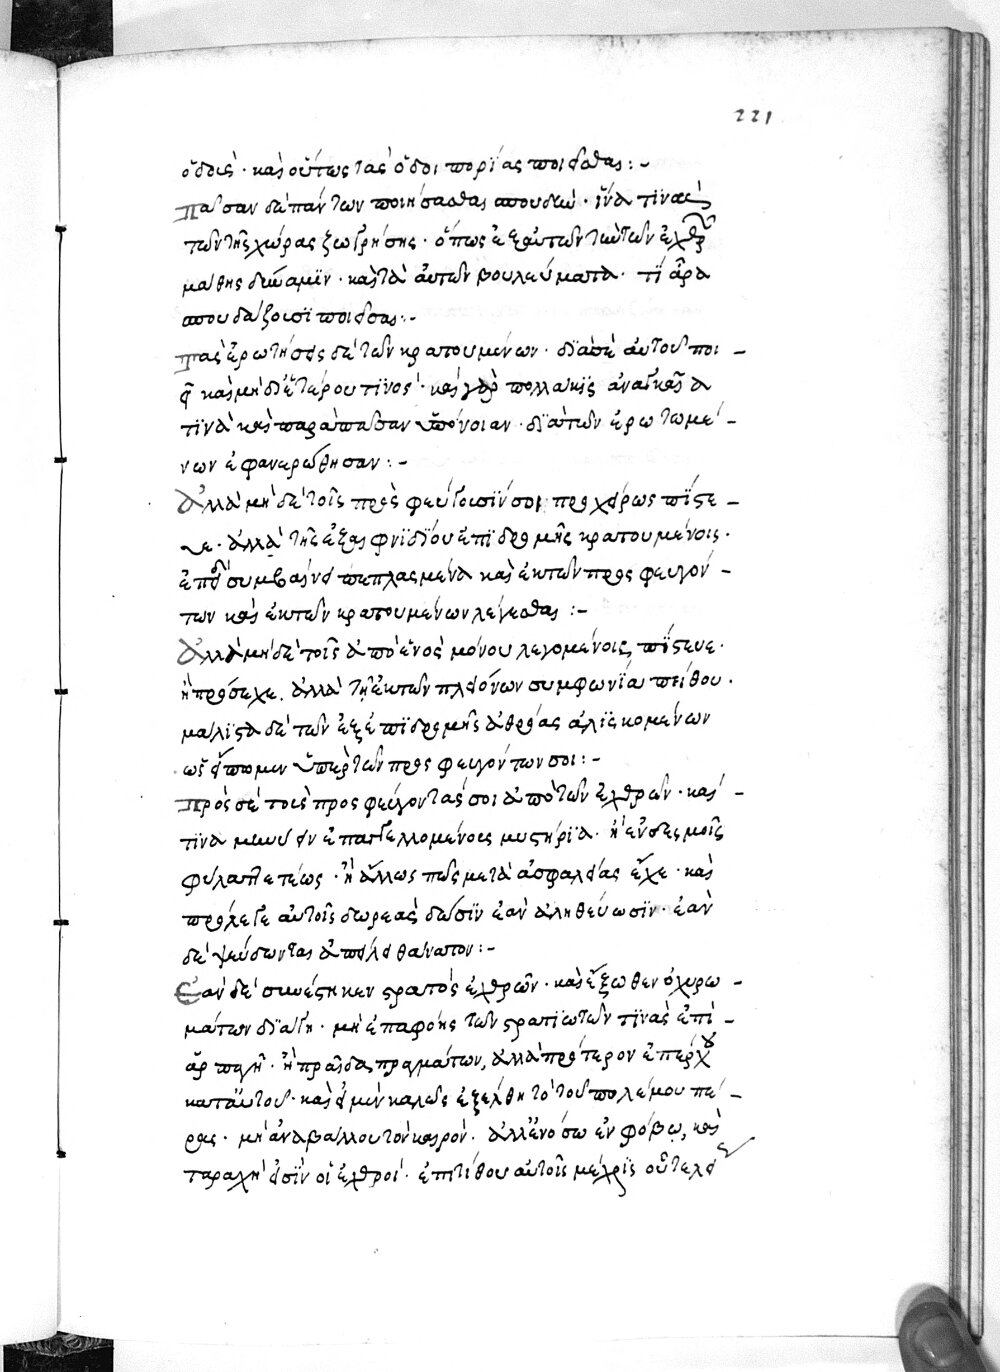 221
ὁδοῖς· καὶ οὕτως τὰς ὁδοιπορίας ποιεῖσθαι :-
Πᾶσαν δὲ πάντων ποιήσασθαι σπουδὴν· ἵνα τινὰς
τῶν τῆς χώρας ζωγρήσης· ὅπως ἐξ αὐτῶν τὰ τῶν ἐχθρῶν
μάθης δύναμιν· καὶ τὰ αὐτῶν βουλεύματα· τί ἄρα
σπουδάζουσι ποιῆσαι :-
Τὰς ἐρωτήσεις δὲ τῶν κρατουμένων· διὰ σὲ αὐτοῦ ποι-
οῦ καὶ μὴ δι' ἑτέρου τινὸς· καὶ γὰρ πολλάκις ἀναγκαῖα
τινὰ καὶ παρὰ πᾶσαν ὑπόνοιαν· διὰ τῶν ἐρωτωμέ-
νων ἐφανερώθησαν :-
Ἀλλὰ μὴ δὲ τοῖς προσφεύγουσίν σοι προχείρως πίστε-
υε· ἀλλὰ τῆς ἐξ αἰφνιδίου ἐπιδρομῆς κρατουμένοις·
ἐπεὶ συμβαίνει πεπλασμένα καὶ ἐκ τῶν προσφευγόν-
των καὶ ἐκ τῶν κρατουμένων λέγεσθαι :-
Ἀλλὰ μὴ δὲ τοῖς ἀπὸ ἑνὸς μόνου λεγομένοις, πίστευε·
ἢ πρόσεχε. ἀλλὰ τῇ ἐκ τῶν πλειόνων συμφωνία πείθου·
μάλιστα δὲ τῶν ἐξ ἐπιδρομῆς ἀθρόας ἁλισκομένων
ὡς εἴπομεν ὑπὲρ τῶν προσφευγόντων σοι :-
Πρὸς δὲ τοὺς προσφεύγοντάς σοι ἀπὸ τῶν ἐχθρῶν· καί-
τινα μηνύειν ἐπαγγελλομένοις μυστήρια· ἢ ἐν δεσμοῖς
φύλαττε τέως· ἢ ἄλλως πως μετὰ ἀσφαλείας εἶχε· καὶ
πρόλεγε αὐτοῖς δωρεὰς δώσιν ἐὰν ἀληθεύωσιν· ἐὰν
δὲ ψεύδωνται ἀπείλει θάνατον :-
Ἐὰν δὲ συνέστηκεν στρατὸς ἐχθρῶν· καὶ ἔξωθεν ὀχυρω-
μάτων διάγη· μὴ ἐπαφίης τῶν στρατιωτῶν τινὰς ἐπὶ-
ἁρπαγῆ· ἢ πραῖδα πραγμάτων, ἀλλὰ πρότερον ἐπέρχου
κατ' αὐτοῦ· καὶ εἰ μὲν καλῶς ἐξέλθη τὸ τοῦ πολέμου πέ-
ρας· μὴ ἀναβάλλου τὸν καιρόν· ἀλλ' ἐν ὅσω ἐν φόβω, καὶ
ταραχὴ εἰσὶν οἱ ἐχθροί· ἐπιτίθου αὐτοῖς μέχρις οὗ τελεί